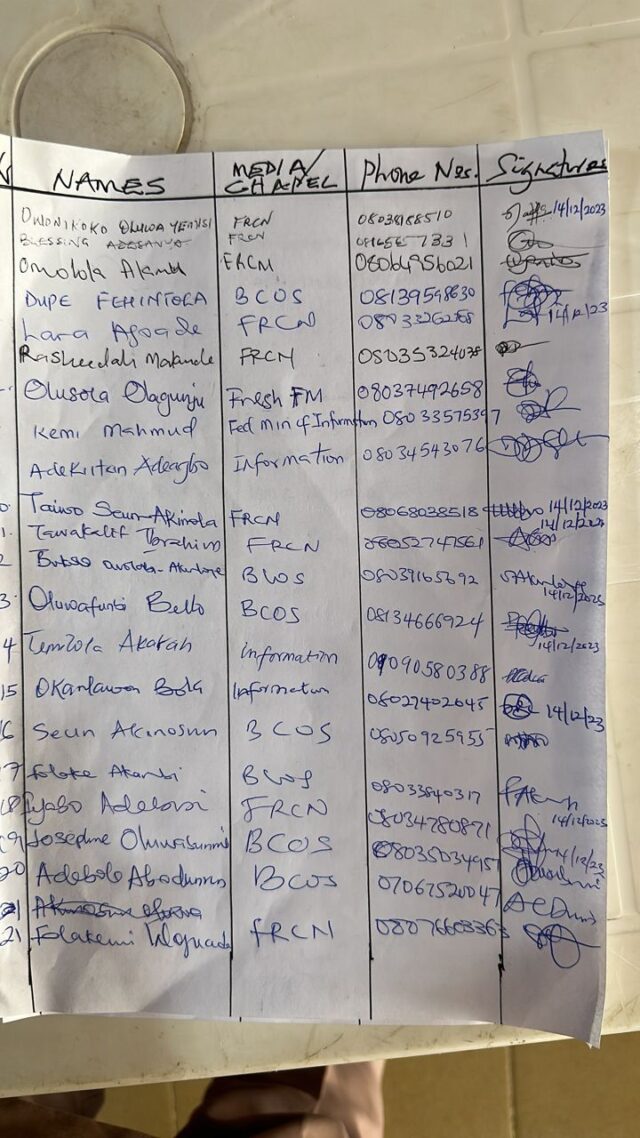 NAMES MEDIA/CHAPEL Phone Nos. Signatures
OWONIKOKO OLUWAYEMISI FRCN 08038188510 14/12/2023
BLESSING ADESANYA FRCN
Omolola Alamu FRCN 08064956021
DUPE FEHINTOLA BCOS 08139598630
Lara Afoade FRCN 14/12/23
Rasheedah Makinde FRCN 08035324038
Olusola Olagunju Fresh FM 08037492658
Kemi Mahmud Fed Min of Information 08033575397
Adekiitan Adeagbo Information 08034543076
Taiwo Seun-Akinola FRCN 08068038518 14/12/2023
Tawakalit Ibrahim FRCN 14/12/2023
2 BCOS 08039165692
3 Oluwafunbi Bello BCOS 08134666924 14/12/2023
4 Temilola Akarah information 09090580388 14/12/2023
15 Okanlawon Bola Information 08027402645 14/12/23
16 Seun Akinosun BCOS 08050925955
17 Foloke Akanbi BCOS 08033840317
18 Iyabo Adelowi FRCN 08034780871 14/12/2023
19 Josephine Oluwabunmi BCOS 08035034957
20 Adebola Abodunrin BCOS 07067520047
21
21 Folakemi FRCN